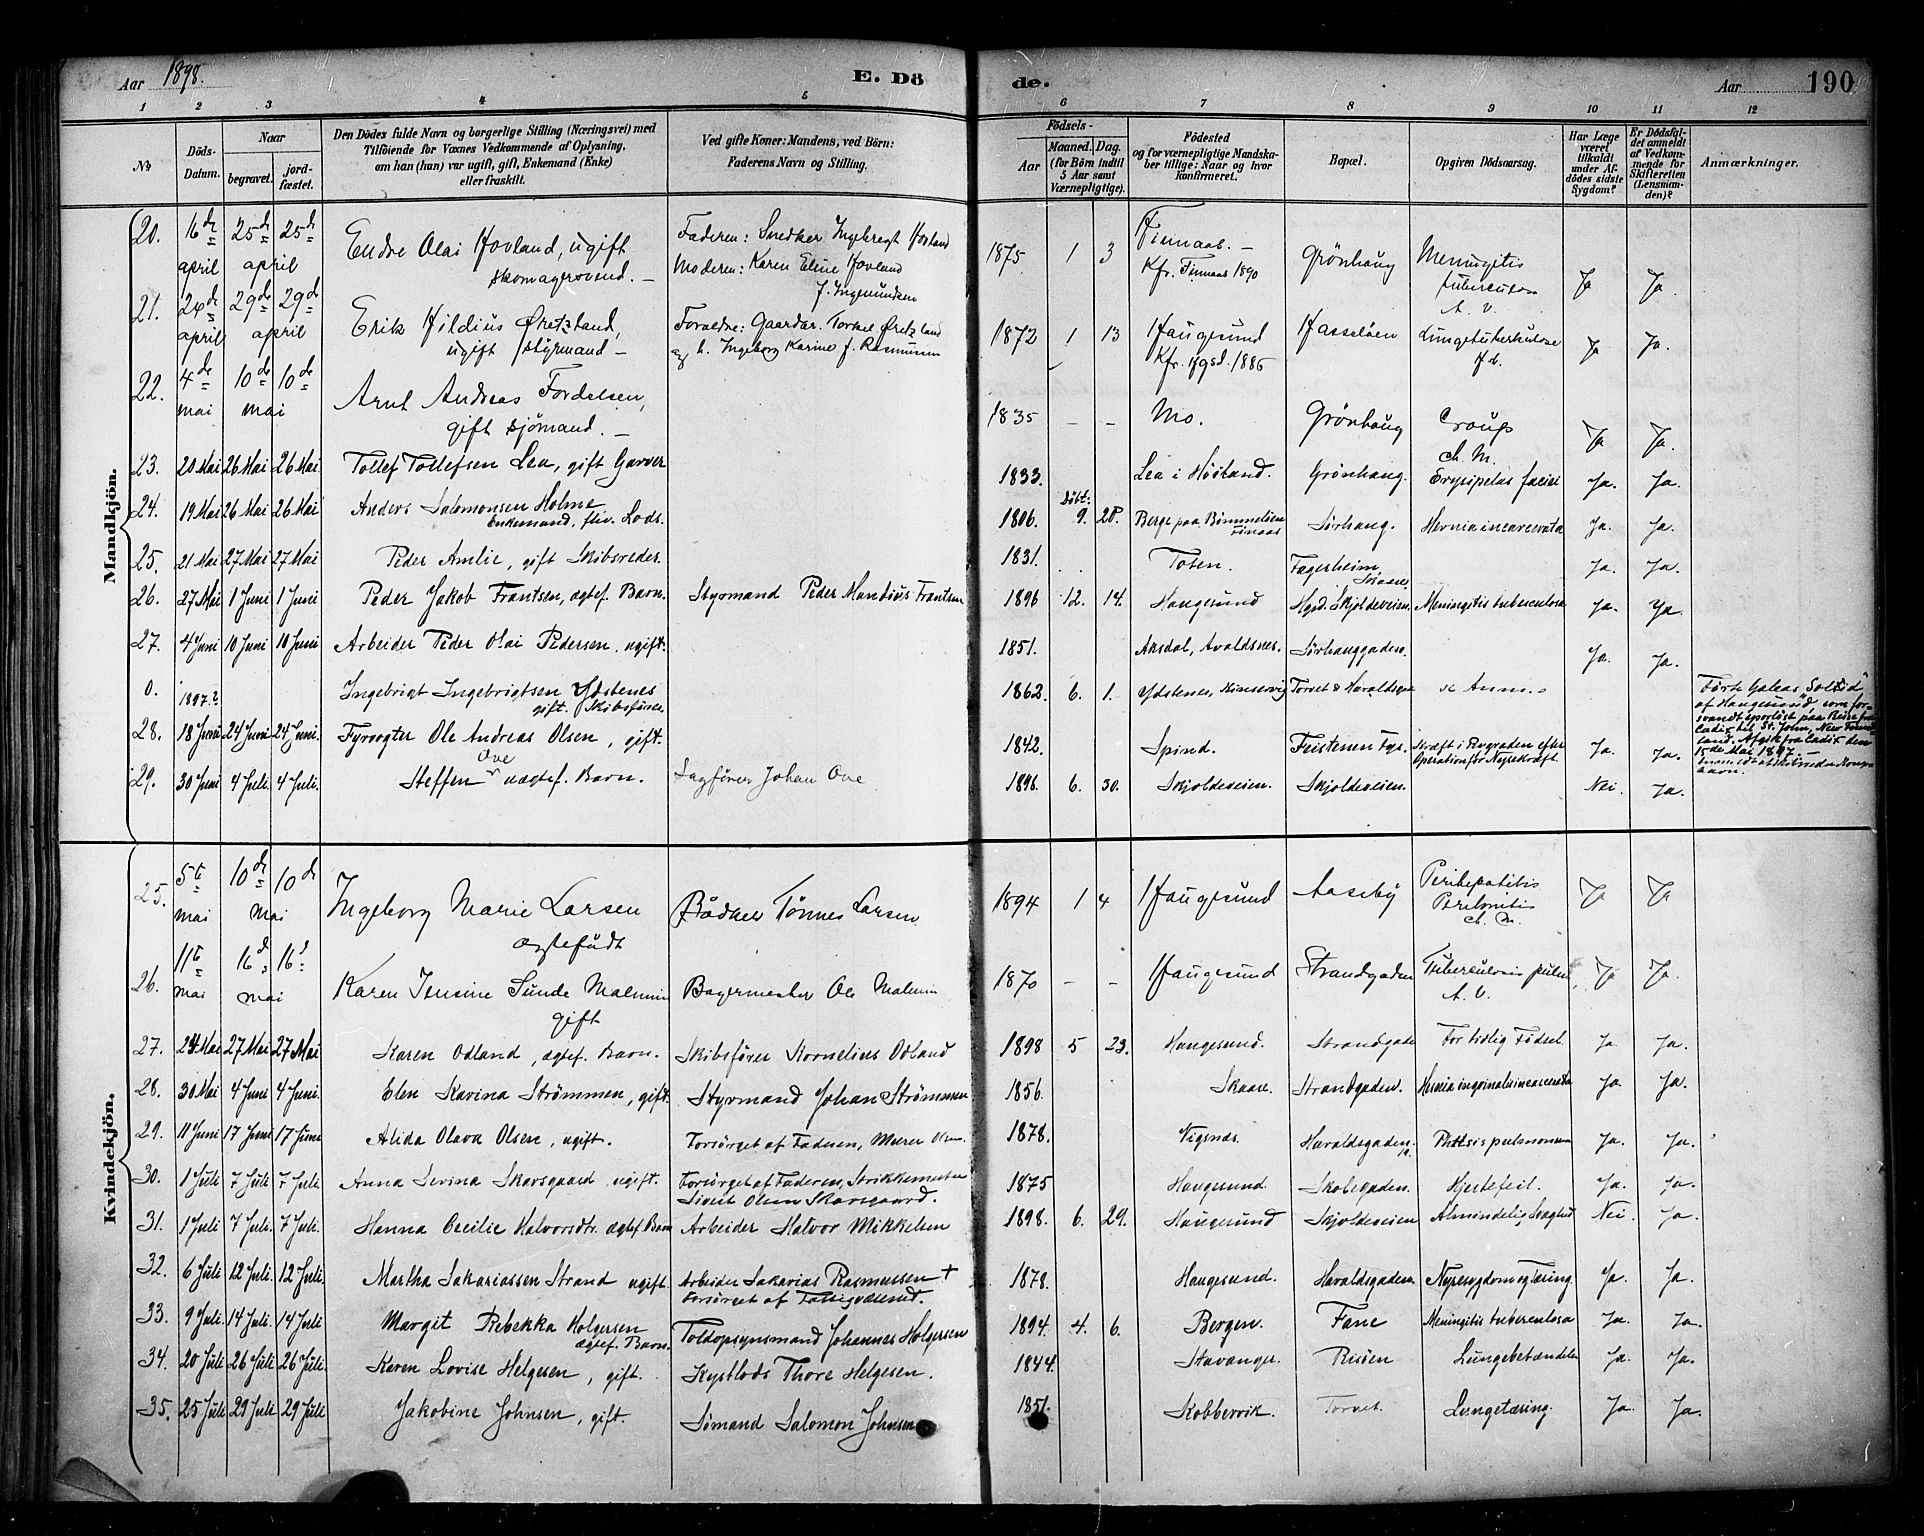 Aar 1898.
E. Dö
de.
Aar
190
1 2 3 4 5 6 7 8 9 10 11 12
No
Döds-Datum.
Naar
begravet.
jordfæstet.
Den Dödes fulde Navn og borgerlige Stilling (Næringsvei) med
Tilföiende for Voxnes Vedkommende af Oplysning,
om han (hun) var ugift, gift, Enkemand (Enke)
eller fraskilt.
Ved gifte Koner: Mandens, ved Börn:
Faderens Navn og Stilling.
Födsels-
Aar
Maaned. Dag.
(for Börn indtil
5 Aar samt
Værnepligtige).
Födested
og for værnepligtige Mandska-
ber tillige: Naar og hvor
konfirmeret.
Bopæl.
Opgiven Dödsaarsag.
Har Læge
været
tilkaldt
under Af-
dödes sidste
Sygdom?
Er Dödsfal-
det anmeldt
af Vedkom-
mende for
Skifteretten
(Lensman-
den)?
Anmærkninger.
Mandkjön.
20. 16de april 25de april 25de Endre Olai Hovland, ugift Faderen: Snedker Ingebregt Hovland 1875 1 3 Finnaas. — Grönhaug Meningitis Ja Ja.
skomagersvend. — Moderen: Karen Eline Hovland Kfr. Finnaas 1890 tuberculosa
f. Ingemundsen A. V.
21. 24de april 29de april 29de Erik Hildius Øretzland, Forældre: Gaardbr. Torkel Øretzland 1872 1 13 Haugesund Hasseløen Lungetuberkulose Ja Ja.
ugift styrmand — og h. Ingeborg Karine f. Rasmussen Kfr. Hgsd. 1886
22. 4de mai 10de mai 10de Arnt Andreas Fordelsen, 1835 - - Mo. Grönhaug Croup Ja Ja.
gift sjömand. — ch. M.
23. 20 Mai 26 Mai 26 Mai Tollef Tollefsen Lea, gift Garver 1833. Lea i Höiland. Grönhaug. Erysipelas faciei Ja. Ja.
24. 19 Mai 26 Mai 26 Mai Anders Salomonsen Holme 1806. Döbt: 9. 28. Berge paa Bömmelöen Sörhaug. Hernia incarcerata Ja. Ja.
Enkemand, fhv. Lods. Finaas
25. 21 Mai 27 Mai 27 Mai Peder Amlie, gift Skibsreder. 1831. Toten. Fagerheim Ja. Ja.
Skaare
26. 27 Mai 1 Juni 1 Juni Peder Jakob Frantsen, ægtef. Barn. Styrmand Peder Mandius Frantsen 1896 12. 14. Haugesund Hgsd. Skjoldeveien. Meningitis tuberculosa Ja. Ja.
27. 4 Juni 10 Juni 10 Juni Arbeider Peder Olai Pedersen, ugift. 1851. Aksdal, Avaldsnes. Sörhauggaden. Ja. Ja.
0. 1897? Ingebrigt Ingebrigtsen Ydstenes 1862. 6. 1. Ydstenes, Torvet & Haraldsg. Anm. Förte Galeas "Solid"
gift. Skibsförer. af Haugesund, som for-
svandt sporløst paa Reise fra
Cadix til St John, New Found-
land. Afgik fra Cadix den
15de Mai 1897. —
28. 18 Juni 24 Juni 24 Juni. Fyrvogter Ole Andreas Olsen, gift. 1842. Spind. Feistenen Fyr. Kræft i Rygraden efter Ja. Ja.
Operation for Nyrekræft.
29. 30 Juni 4 Juli. 4 Juli. Steffen Ove uægtef. Barn. Sagförer Johan Ove 1898. 6. 30. Skjoldeveien. Skjoldeveien. Nei. Ja.
Kvindekjön.
25. 5te mai 10de mai 10de Ingeborg Marie Larsen Bödker Tönnes Larsen 1894 1 4 Haugesund Aaseby Perihepatitis Ja Ja
ægtefödt Peritonitis
ch. M.
26. 11te mai 16de mai 16de Karen Jensine Sunde Malmin Bagermester Ole Malmin 1870 - - Haugesund Strandgaden Tuberculosis pulm. Ja Ja.
gift A. V.
27. 24 Mai 27 Mai 27 Mai Karen Odland, ægtef. Barn. Skibsförer Kornelius Odland 1898 5 23. Haugesund. Strandgade For tidlig Födsel. Ja Ja.
28. 30 Mai 4 Juni 4 Juni. Elen Karina Strömmen, gift. Styrmand Johan Strömmen 1856. Skaare. Strandgaden. Hernia ingvinalis incarcerata Ja. Ja.
29. 11 Juni 17 Juni 17 Juni Alida Olava Olsen, ugift. Forsörget af Faderen, Murer Olsen. 1878. Vigsnæs. Haraldsgaden. Phthisis pulmonum Ja. Ja.
30. 1 Juli 7 Juli 7 Juli. Anna Sevina Skarsgaard, ugift. Forsörget af Faderen, Strikkemester 1875 Haugesund. Skolegaden. Hjertefeil. Ja. Ja.
Sivert Olsen Skarsgaard.
31. 1 Juli 7 Juli. 7 Juli. Hanna Cecilie Halvorsdtr. ægtef. Barn Arbeider Halvor Mikkelsen 1898. 6. 29. Haugesund Skjoldeveien Almindelig Svaghed Nei. Ja.
32. 6 Juli 12 Juli. 12 Juli. Martha Sakariassen Strand ugift Arbeider Sakarias Rasmussen + 1878. Haugesund. Haraldsgaden Nyresygdom og Tæring. Ja. Ja.
Forsörget af Fattigvæsenet.
33. 9 Juli. 14 Juli. 14 Juli. Margit Rebekka Holgersen Toldopsynsmand Johannes Holgersen 1894. 4. 6. Bergen. Fane Meningitis tuberculosa Ja. Ja.
ægtef. Barn.
34. 20 Juli 26 Juli 26 Juli. Karen Lovise Helgesen, gift. Kystlods Thore Helgesen. 1844. Stavanger. Risöen Lungebetændelse Ja. Ja.
35. 25 Juli 29 Juli 29 Juli Jakobine Johnsen, gift. Sömand Salomon Johnsen 1851. Kobbervik. Torvet. Lungetæring. Ja. Ja.